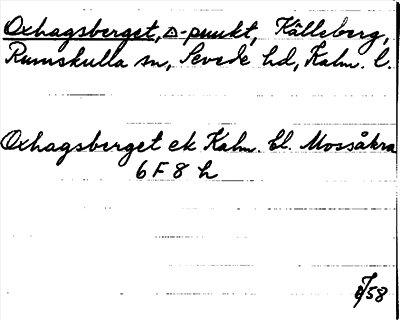 Oxhagsberget, △-punkt, Källeberg,
Rumskulla sn, Sevede hd, Kalm. l.
Oxhagsberget ek Kalm. bl. Mossåkra
6 F 8 h
/58